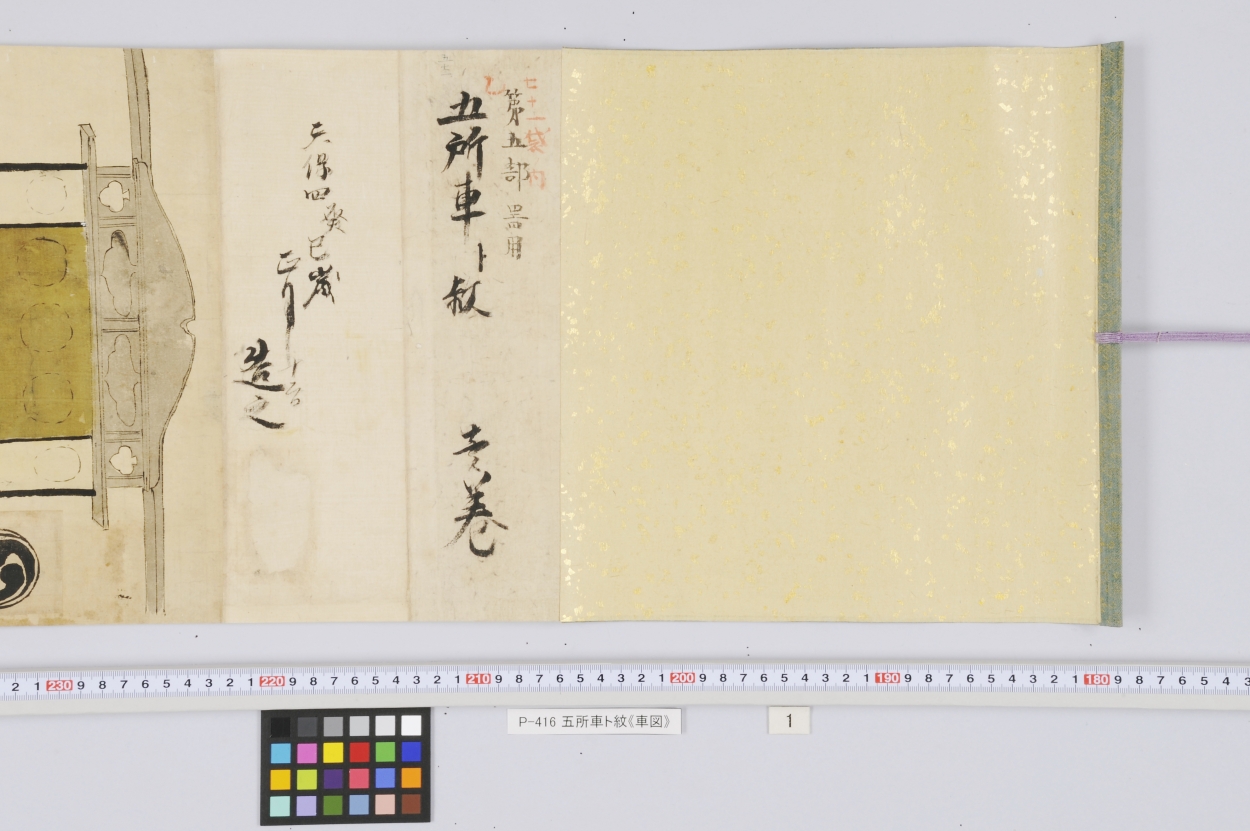 七十一袋内
第五部 器用
乙
五所車ト紋 壱巻
天保四癸巳歳
正月
造之
2 1 230 9 8 7 6 5 4 3 2 1 220 9 8 7 6 5 4 3 2 1 210 9 8 7 6 5 4 3 2 1 200 9 8 7 6 5 4 3 2 1 190 9 8 7 6 5 4 3 2 1 180 9 8 7 6 5 4 3
P-416 五所車ト紋《車図》
1